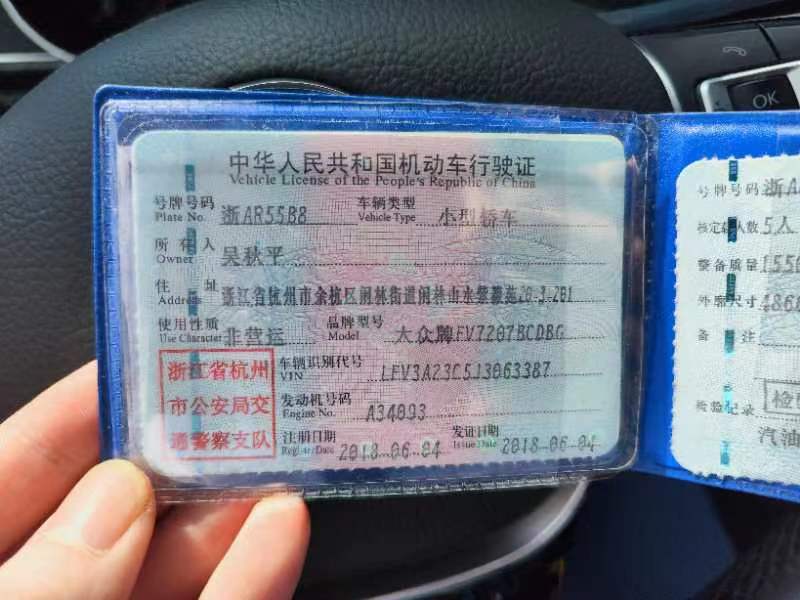 中华人民共和国机动车行驶证
Vehicle License of the People's Republic of China
号牌号码 浙AR55B8 车辆类型 小型轿车
Plate No. Vehicle Type
所有人 吴秋平
Owner
住址 浙江省杭州市余杭区闲林街道闲林山水 28-3-201
Address
使用性质 非营运 品牌型号 大众牌FV7207BCDBG
Use Character Model
浙江省杭州
市公安局交
通警察支队
车辆识别代号 LFV3A23C5J3063387
VIN
发动机号码 A34093
Engine No.
注册日期 2018-06-04 发证日期 2018-06-04
Register Date Issue Date
号牌号码 浙A
核定载人数 5人
整备质量 1550
外廓尺寸 486
备注
检验记录
汽油
OK